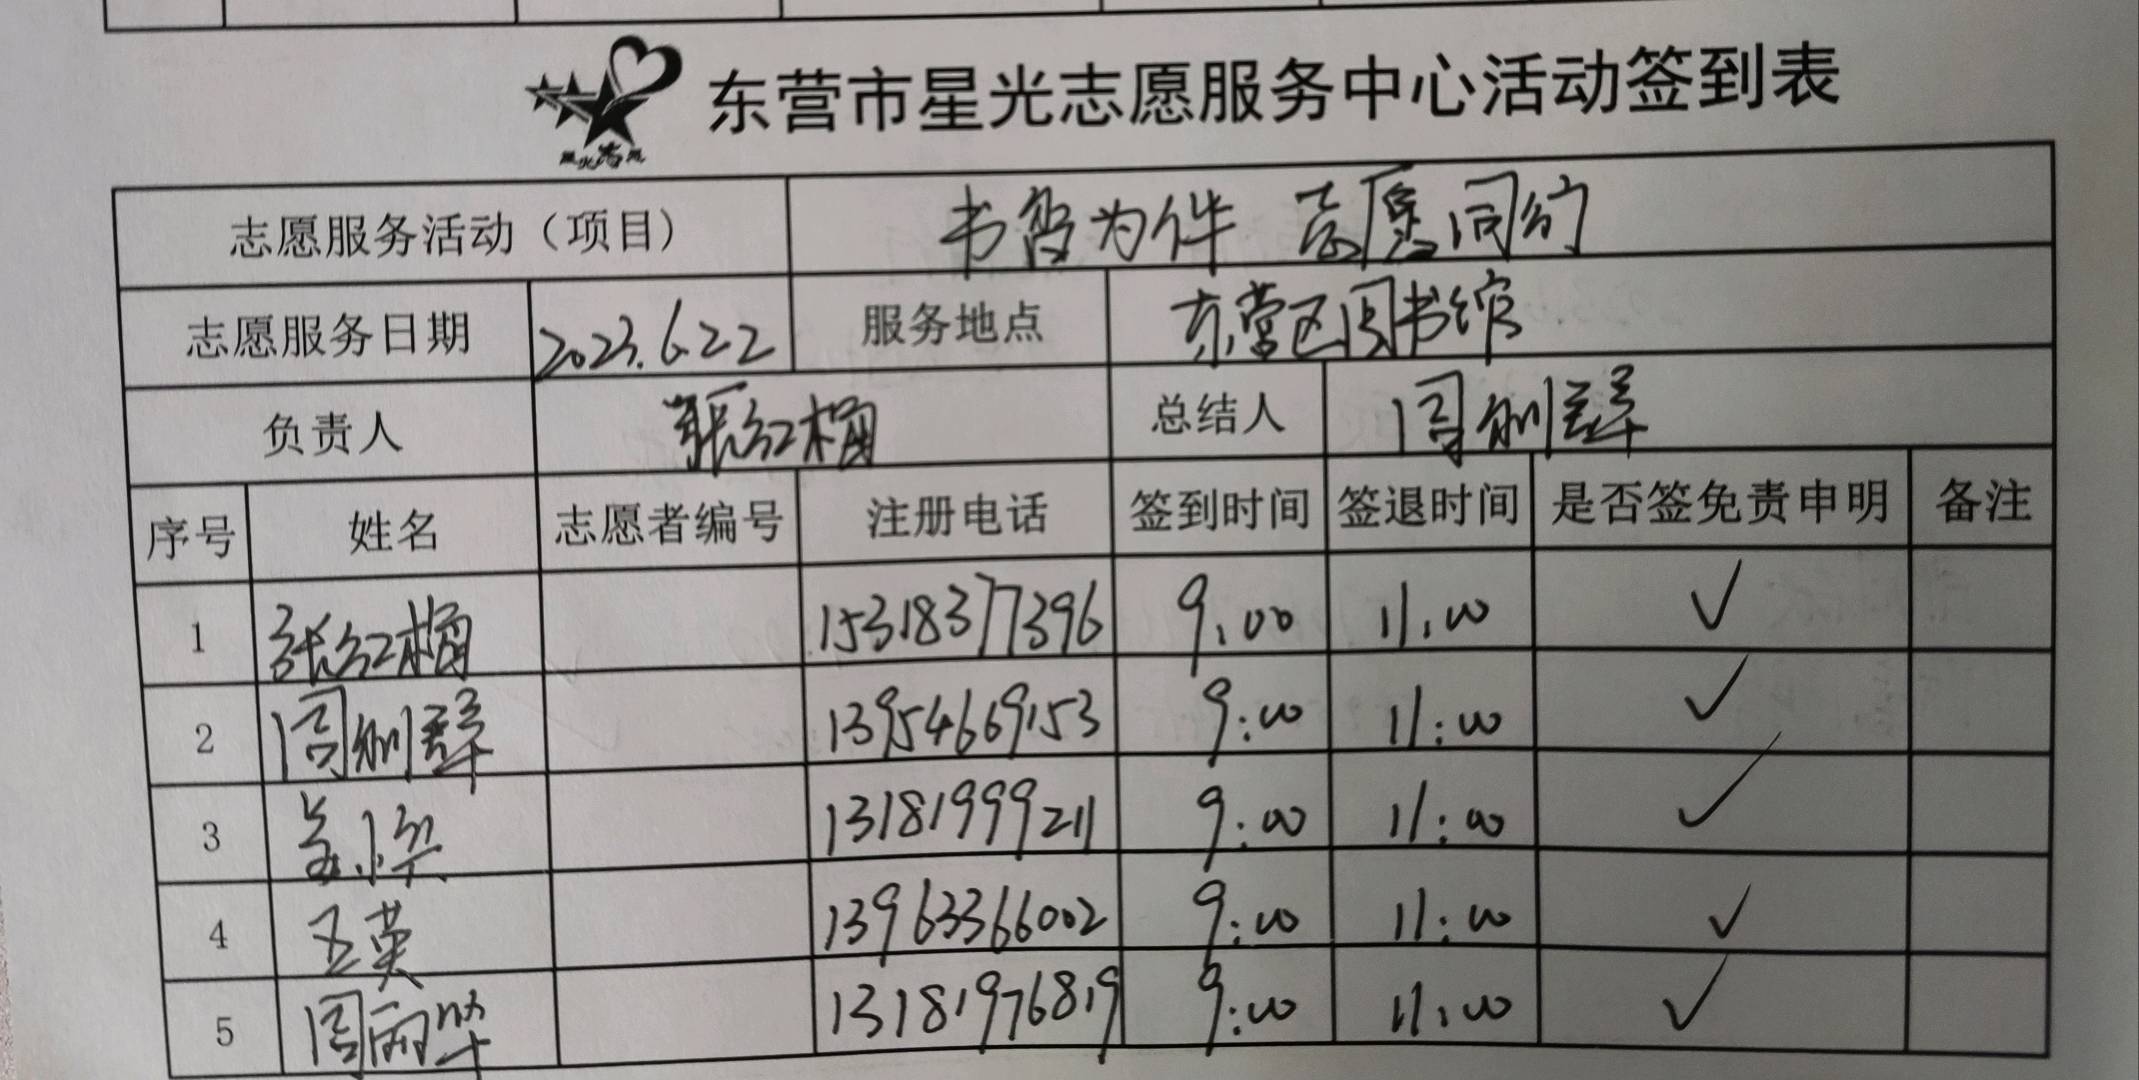 东营市星光志愿服务中心活动签到表
志愿服务活动（项目） 书香为伴 志愿同行
志愿服务日期 2023.6.22 服务地点 东营区图书馆
负责人 张红梅 总结人 周翠
序号 姓名 志愿者编号 注册电话 签到时间 签退时间 是否签免责申明 备注
1 张红梅 15318377396 9:00 11:00 ✓
2 周 13954669153 9:00 11:00 ✓
3 13181999211 9:00 11:00 ✓
4 王英 13963366002 9:00 11:00 ✓
5 周丽华 13181976819 9:00 11:00 ✓